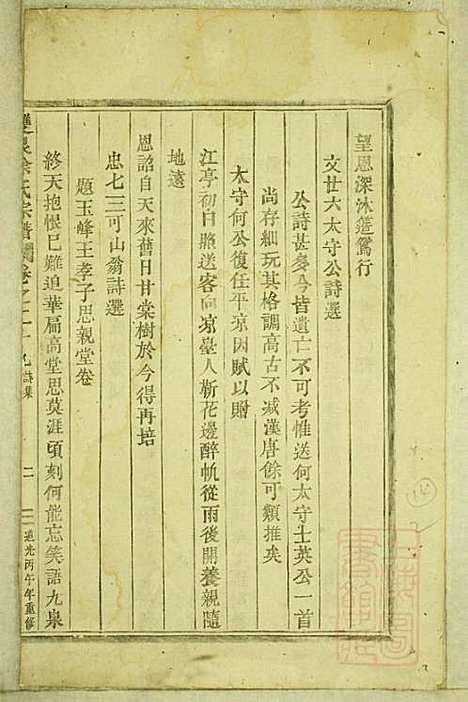 望恩深沐蘧儔行
文廿六太守公詩選
公詩甚多今皆遺亡不可考惟送何太守士英公一首
尚存細玩其格調高古不减漢唐餘可類推矣
太守何公復任平凉因賦以贈
江亭初日將送客向凉臺人斬花邊醉帆從雨後開養親隨
地遠
恩詔自天來舊日甘棠樹於今得再培
忠七三可山翁詩選
題玉峰王孝子思親堂卷
終天抱恨已難追華扁高堂思莫涯頃刻何能忘笑語九泉
雙泉徐氏宗譜 卷之二十九 詩集 二 道光丙午年重修